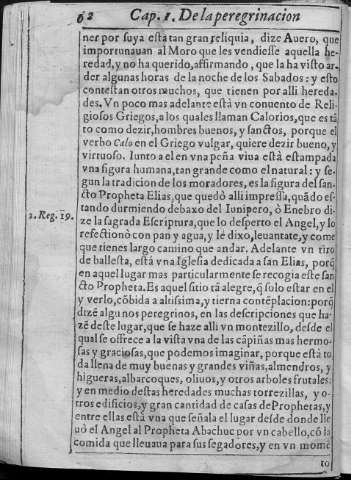 62 Cap. 1. De la peregrinacion
ner por suya està tan gran reliquia, dize Auero, que
importunauan al Moro que les vendiesse aquella he
redad, y no ha querido, affirmando, que la ha visto ar
der algunas horas de la noche de los Sabados: y esto
contestan otros muchos, que tienen por alli hereda-
des. Vn poco mas adelante està vn conuento de Reli-
giosos Griegos, a los quales llaman Calorios, que es tã
to como dezir, hombres buenos, y sanctos, porque el
verbo Calo en el Griego vulgar, quiere dezir bueno, y
virtuoso. Iunto a el en vna peña viua està estampada
vna figura humana, tan grande como el natural: y se-
gun la tradicion de los moradores, es la figura del san-
cto Propheta Elias, que quedò alli impressa, quãdo es-
tando durmiendo debaxo del Iunipero, ò Enebro di-
2. Reg. 19.
ze la sagrada Escriptura, que lo desperto el Angel, y lo
refectionò con pan y agua, y lé dixo, leuantate, y come
que tienes largo camino que andar. Adelante vn tiro
de ballesta, està vna Iglesia dedicada a san Elias, porq̃
en aquel lugar mas particularmente se recogia este san
cto Propheta. Es aquel sitio tã alegre, q̃ solo estar en el
y verlo, cõbida a altissima, y tierna contẽplacion: porq̃
dizẽ algunos peregrinos, en las descripciones que ha-
zẽ deste lugar, que se haze alli vn montezillo, desde el
qual se offrece a la vista vna de las cãpiñas mas hermo-
sas y graciosas, que podemos imaginar, porque està to
da llena de muy buenas y grandes viñas, almendros, y
higueras, albarcoques, oliuos, y otros arboles frutales:
y en medio destas heredades muchas torrezillas, y o-
tros edificios, y gran cantidad de casas de Prophetas, y
entre ellas està vna que señala el lugar desde donde lle
uó el Angel al Propheta Abachuc por vn cabello, cõ la
comida que lleuaua para sus segadores, y en vn momẽ
to